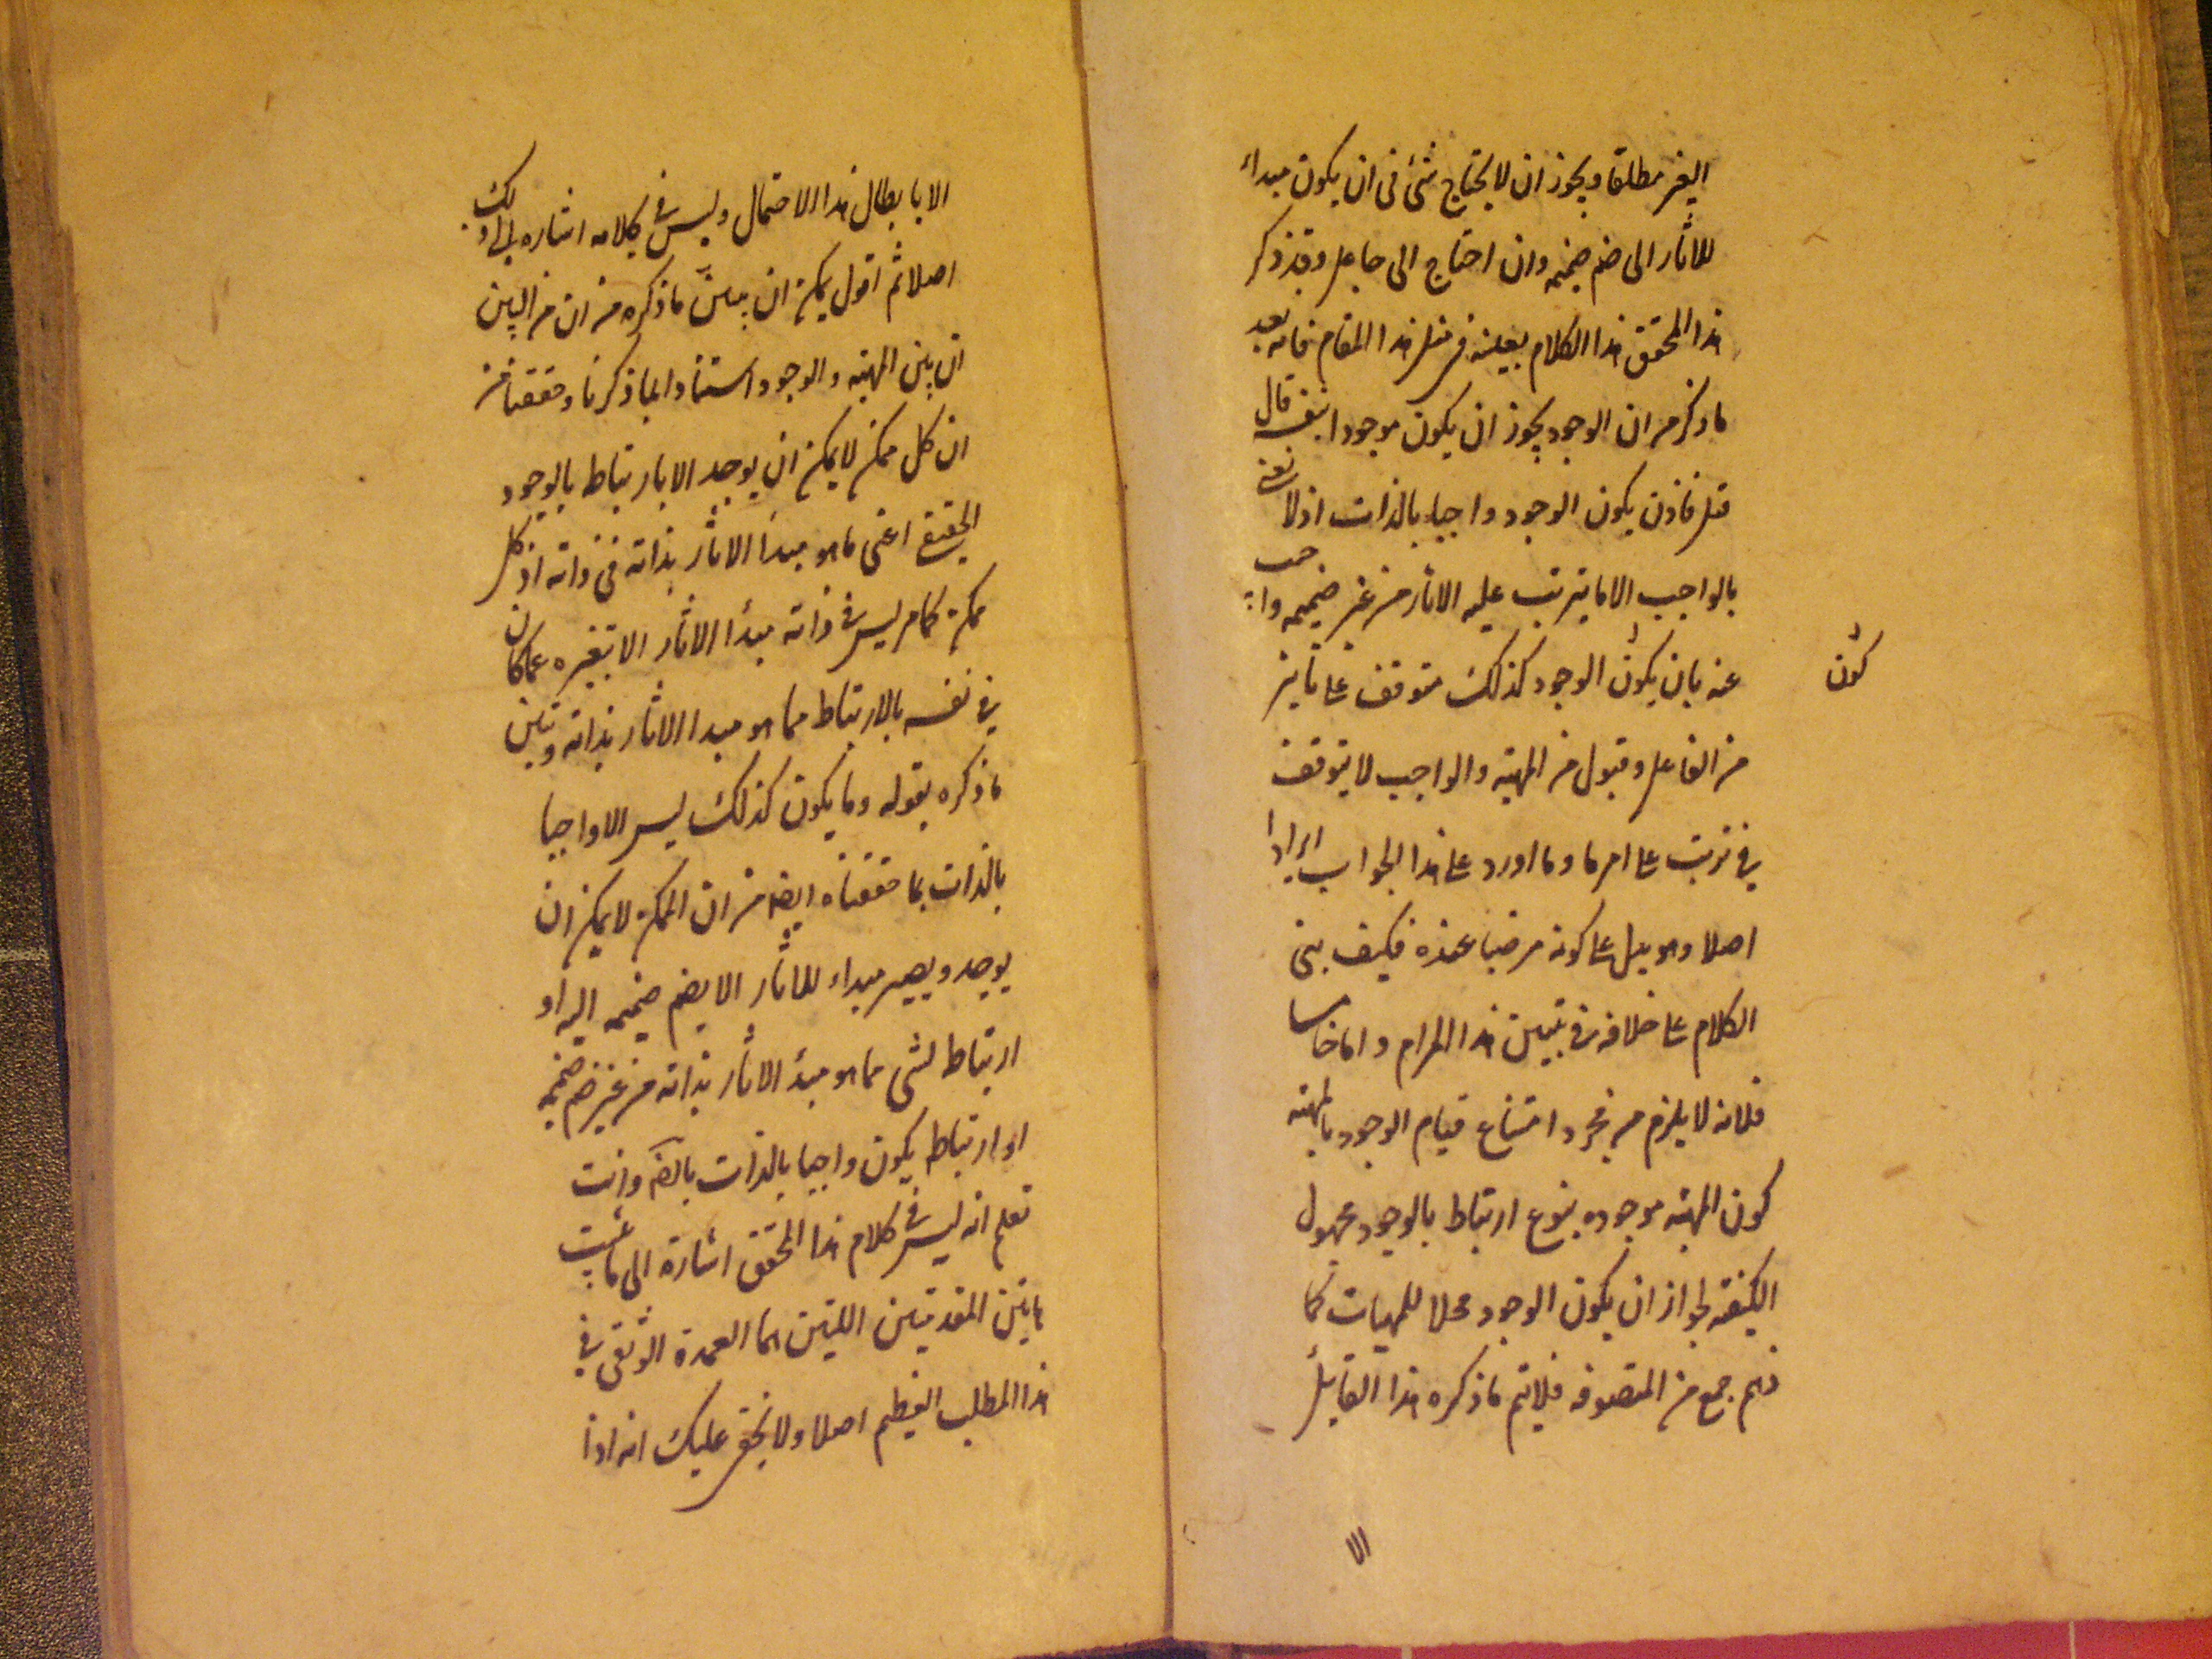 الغير مطلقا ويجوز ان لا يحتاج شئ فى ان يكون مبداء
للاثار الى ضم ضميمه وان احتاج الى جاعل وقد ذكر
هذا المحقق هذا الكلام بعينه فى مثل هذا المقام فانه بعد
ما ذكر من ان الوجود يجوز ان يكون موجودا بنفسه قال
قيل فاذن يكون الوجود واجبا بالذات اذ لا نعنى
بالواجب الا ما يترتب عليه الاثار من غير ضميمه واجيب
عنه بان يكون الوجود كذلك متوقف على تاثير
كون
من الفاعل وقبول من المهية والواجب لا يتوقف
فى ترتب على امر ما وما اورد على هذا الجواب ايرادا
اصلا وهو يدل على كونه مرضيا عنده فكيف بنى
الكلام على خلافه فى تبيين هذا المرام واما خامسا
فلانه لا يلزم من مجرد امتناع قيام الوجود بالمهية
كون المهية موجوده بنوع ارتباط بالوجود مجهول
الكيفية لجواز ان يكون الوجود محلا للمهيات كما
فهم جمع من المتصوفه فلا يتم ما ذكره هذا القايل
الا
الا بابطال هذا الاحتمال وليس فى كلامه اشاره الى ذلك
اصلا ثم اقول يمكن ان يبين ما ذكره من ان من البين
ان بين المهية والوجود استنادا لما ذكرنا وحققنا من
ان كل ممكن لا يمكن ان يوجد الا بارتباط بالوجود
الحقيقى اعنى ما هو مبدا الاثار بذاته فى ذاته اذ كل
ممكن كما مر ليس فى ذاته مبدأ الاثار الا بتغيره عما كان
فى نفسه بالارتباط مما هو مبدا الاثار بذاته وتبين
ما ذكره بقوله وما يكون كذلك ليس الا واجبا
بالذات بما حققناه ايضا من ان الممكن لا يمكن ان
يوجد ويصير مبداء للاثار الا بضم ضميمه اليه او
ارتباط لشى مما هو مبدأ الاثار بذاته من غير ضم ضميمه
او ارتباط يكون واجبا بالذات بالضرورة وانت
تعلم انه ليس فى كلام هذا المحقق اشارة الى ما يثبت
هاتين المقدمتين اللتين هما العمدة الوثقى فى
هذا المطلب العظيم اصلا ولا يخفى عليك انه اذا